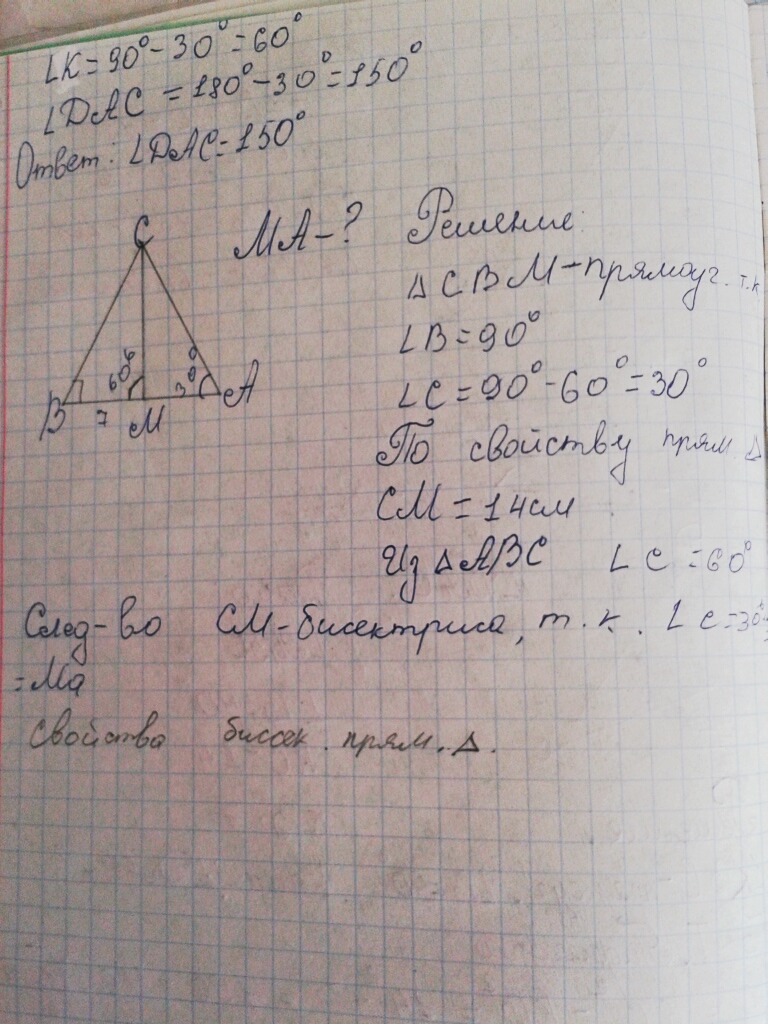 ∠K = 90° - 30° = 60°
∠DAC = 180° - 30° = 150°
Ответ: ∠DAC = 150°
C
MA - ?
60°
30°
B
7
M
A
Решение:
△CBM - прямоуг. т.к
∠B = 90°
∠C = 90° - 60° = 30°
По свойству прям △
CM = 14см
Из △ABC ∠C = 60°
След-во CM - бисектриса, т. к. ∠C = 30°
= Ma
Свойства бисек. прям. △.